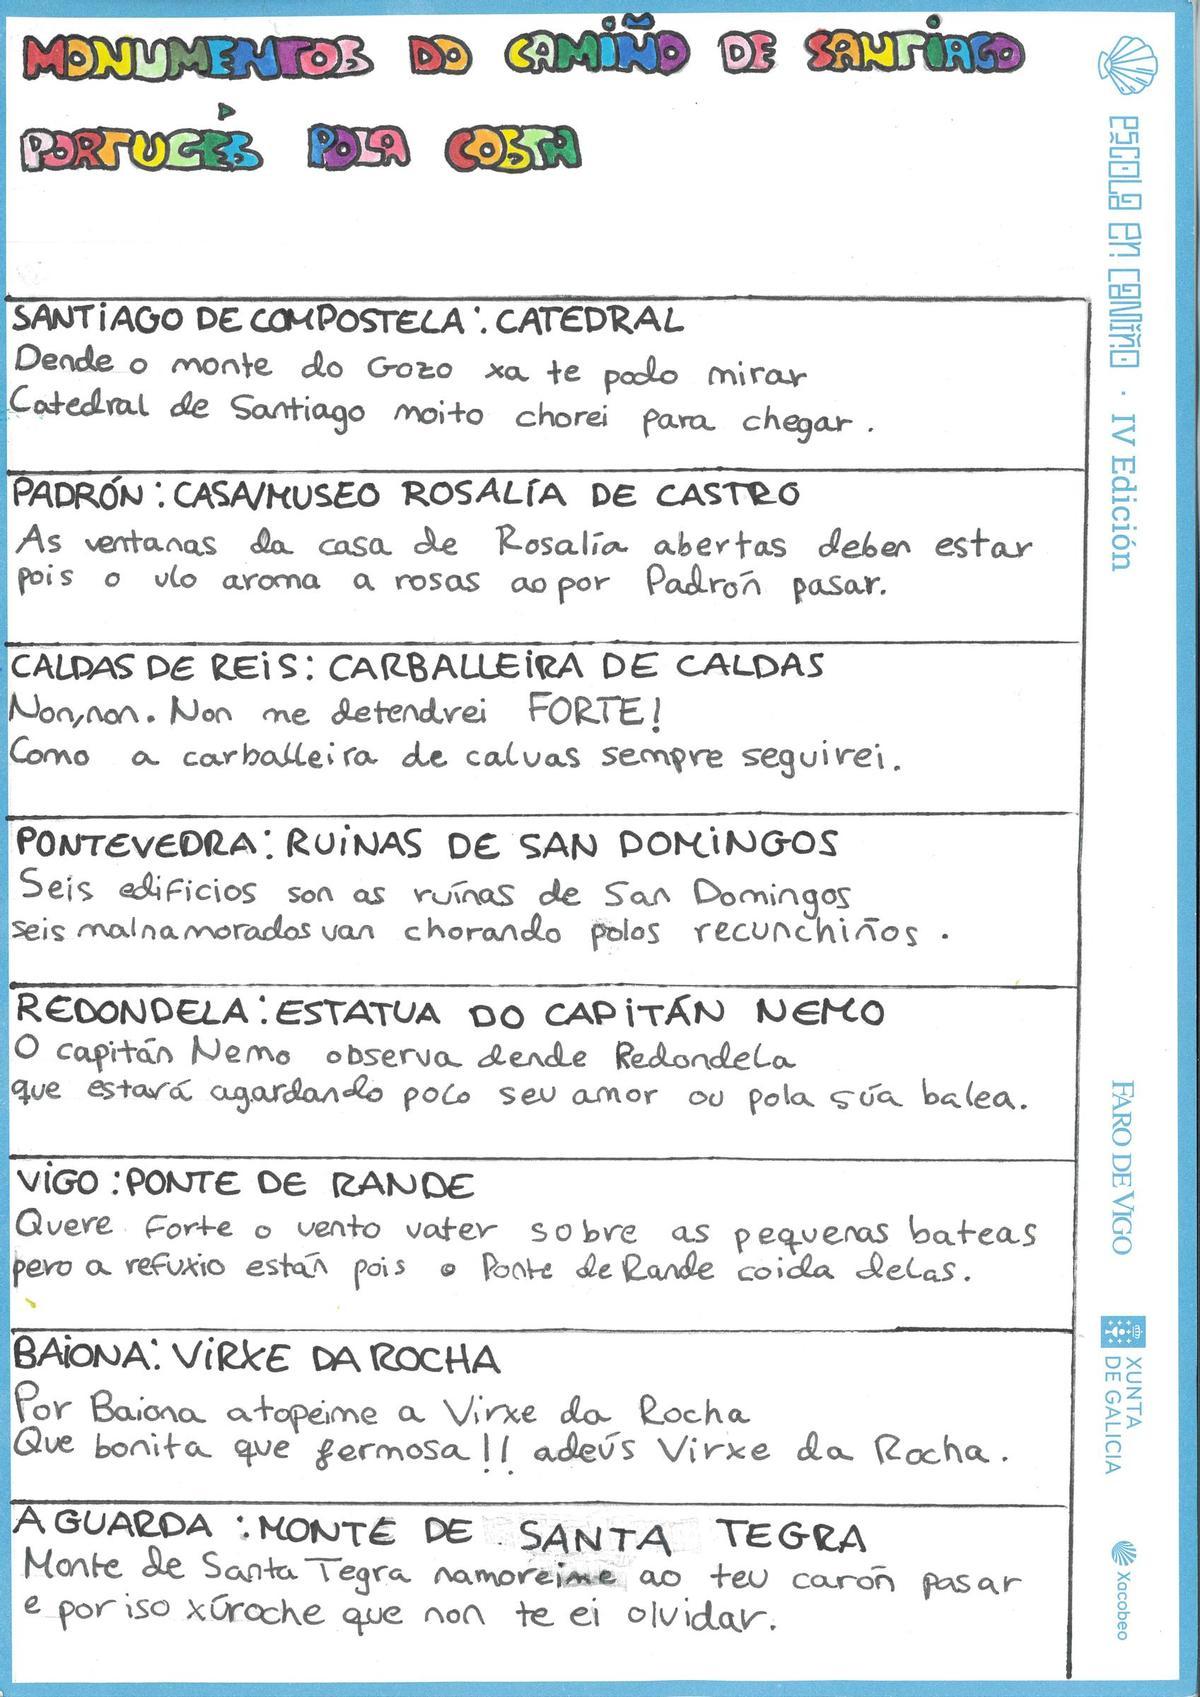 MONUMENTOS DO CAMIÑO DE SANTIAGO
PORTUGÉS POLA COSTA
SANTIAGO DE COMPOSTELA: CATEDRAL
Dende o monte do Gozo xa te podo mirar
Catedral de Santiago moito chorei para chegar.
PADRÓN: CASA/MUSEO ROSALÍA DE CASTRO
As ventanas da casa de Rosalía abertas deben estar
pois o ulo aroma a rosas ao por Padrón pasar.
CALDAS DE REIS: CARBALLEIRA DE CALDAS
Non,non. Non me detendrei FORTE!
Como a carballeira de caldas sempre seguirei.
PONTEVEDRA: RUINAS DE SAN DOMINGOS
Seis edificios son as ruínas de San Domingos
seis malnamorados van chorando polos recunchiños.
REDONDELA: ESTATUA DO CAPITÁN NEMO
O capitán Nemo observa dende Redondela
que estará agardando polo seu amor ou pola súa balea.
VIGO: PONTE DE RANDE
Quere forte o vento vater sobre as pequenas bateas
pero a refuxio están pois o Ponte de Rande coida delas.
BAIONA: VIRXE DA ROCHA
Por Baiona atopeime a Virxe da Rocha
Que bonita que fermosa!! adeús Virxe da Rocha.
A GUARDA: MONTE DE SANTA TEGRA
Monte de Santa Tegra namoreime ao teu carón pasar
e por iso xúroche que non te ei olvidar.
escola en camiño · IV Edición
FARO DE VIGO
XUNTA
DE GALICIA
Xacobeo